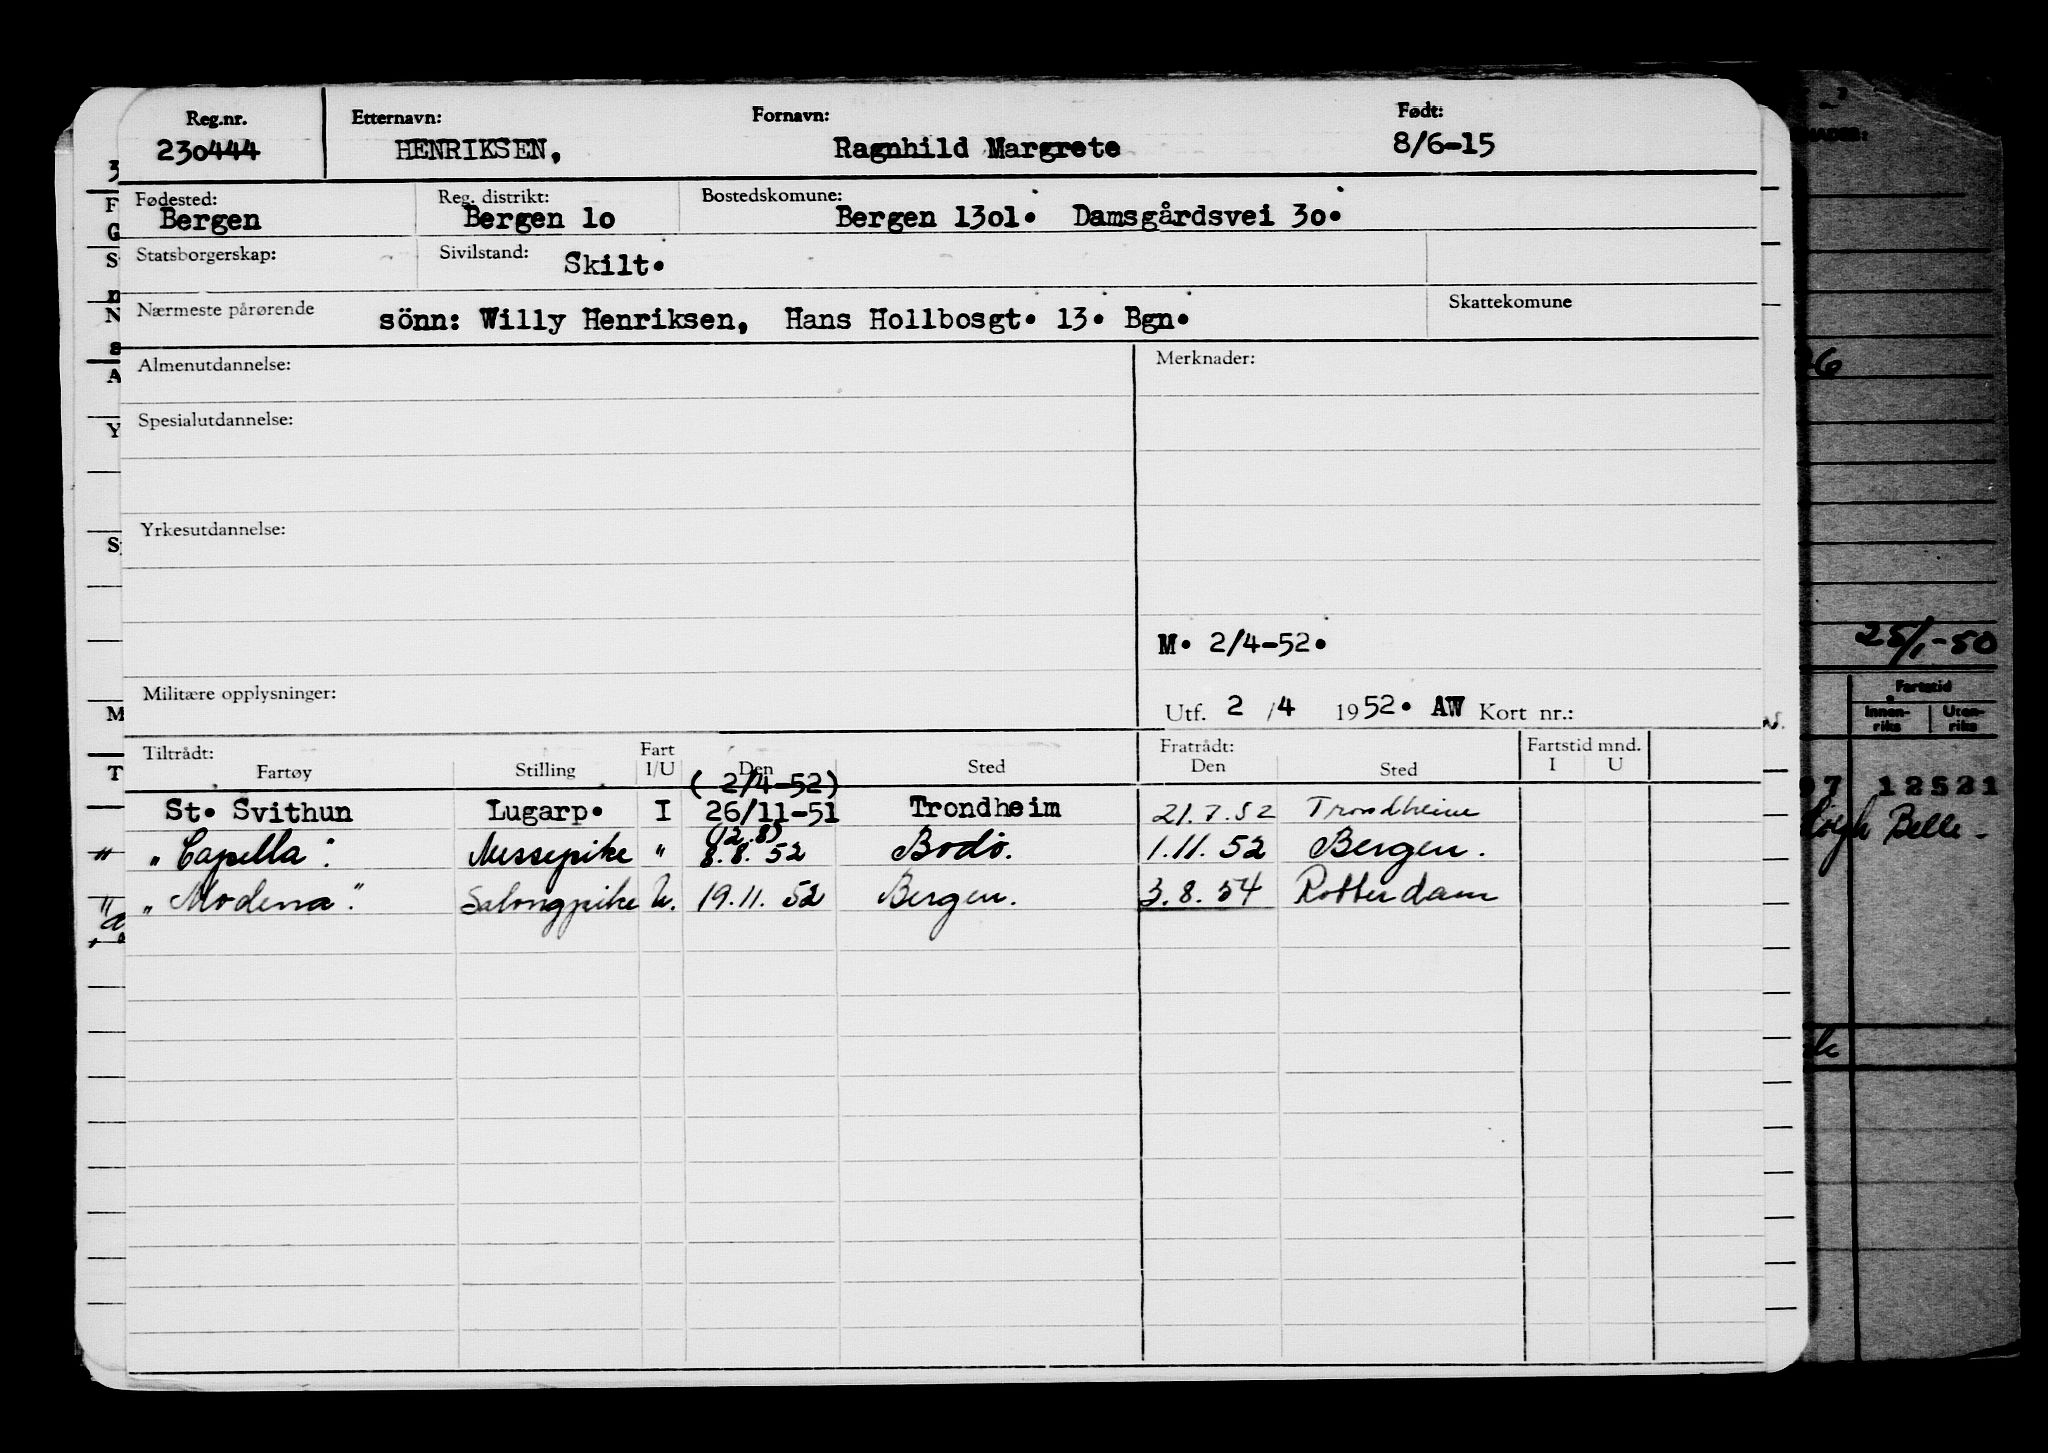 Reg.nr. Etternavn: Fornavn: Født:
230444 HENRIKSEN, Ragnhild Margrete 8/6-15
Fødested: Reg. distrikt: Bostedskomune:
Bergen Bergen 1o Bergen 13o1. Damsgårdsvei 3o.
Statsborgerskap: Sivilstand: Skilt.
Nærmeste pårørende sönn: Willy Henriksen, Hans Hollbosgt. 13. Bgn. Skattekomune
Almenutdannelse: Merknader:
Spesialutdannelse:
Yrkesutdannelse:
M. 2/4-52.
Militære opplysninger: Utf. 2 /4 1952. AW Kort nr.:
Tiltrådt: Fart Fratrådt: Fartstid mnd.
Fartøy Stilling I/U Den Sted Den Sted I U
(2/4-52)
St. Svithun Lugarp. I 26/11-51 Trondheim 21.7.52 Trondheim
(12.8)
" "Capella". Messepike " 8.8.52 Bodö. 1.11.52 Bergen.
" "Modena". Salongpike U. 19.11.52 Bergen. 3.8.54 Rotterdam
25/1-50
Fartstid
Innen-riks Uten-riks
12521
Belle-